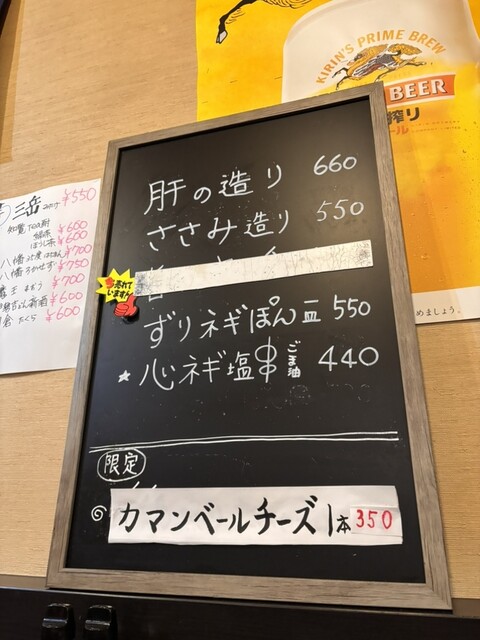 KIRIN'S PRIME BREW
BEER
搾り
めましょう。
三岳 ¥550
知覧 ¥600
緑茶 ¥600
ほうじ茶
八幡 ¥700
八幡 ろかせず ¥750
¥700
¥600
¥600
肝の造り 660
ささみ造り 550
売れて
いますん!
ずりネギぽん一皿 550
★心ネギ塩串 ごま油 440
限定
カマンベールチーズ1本 350